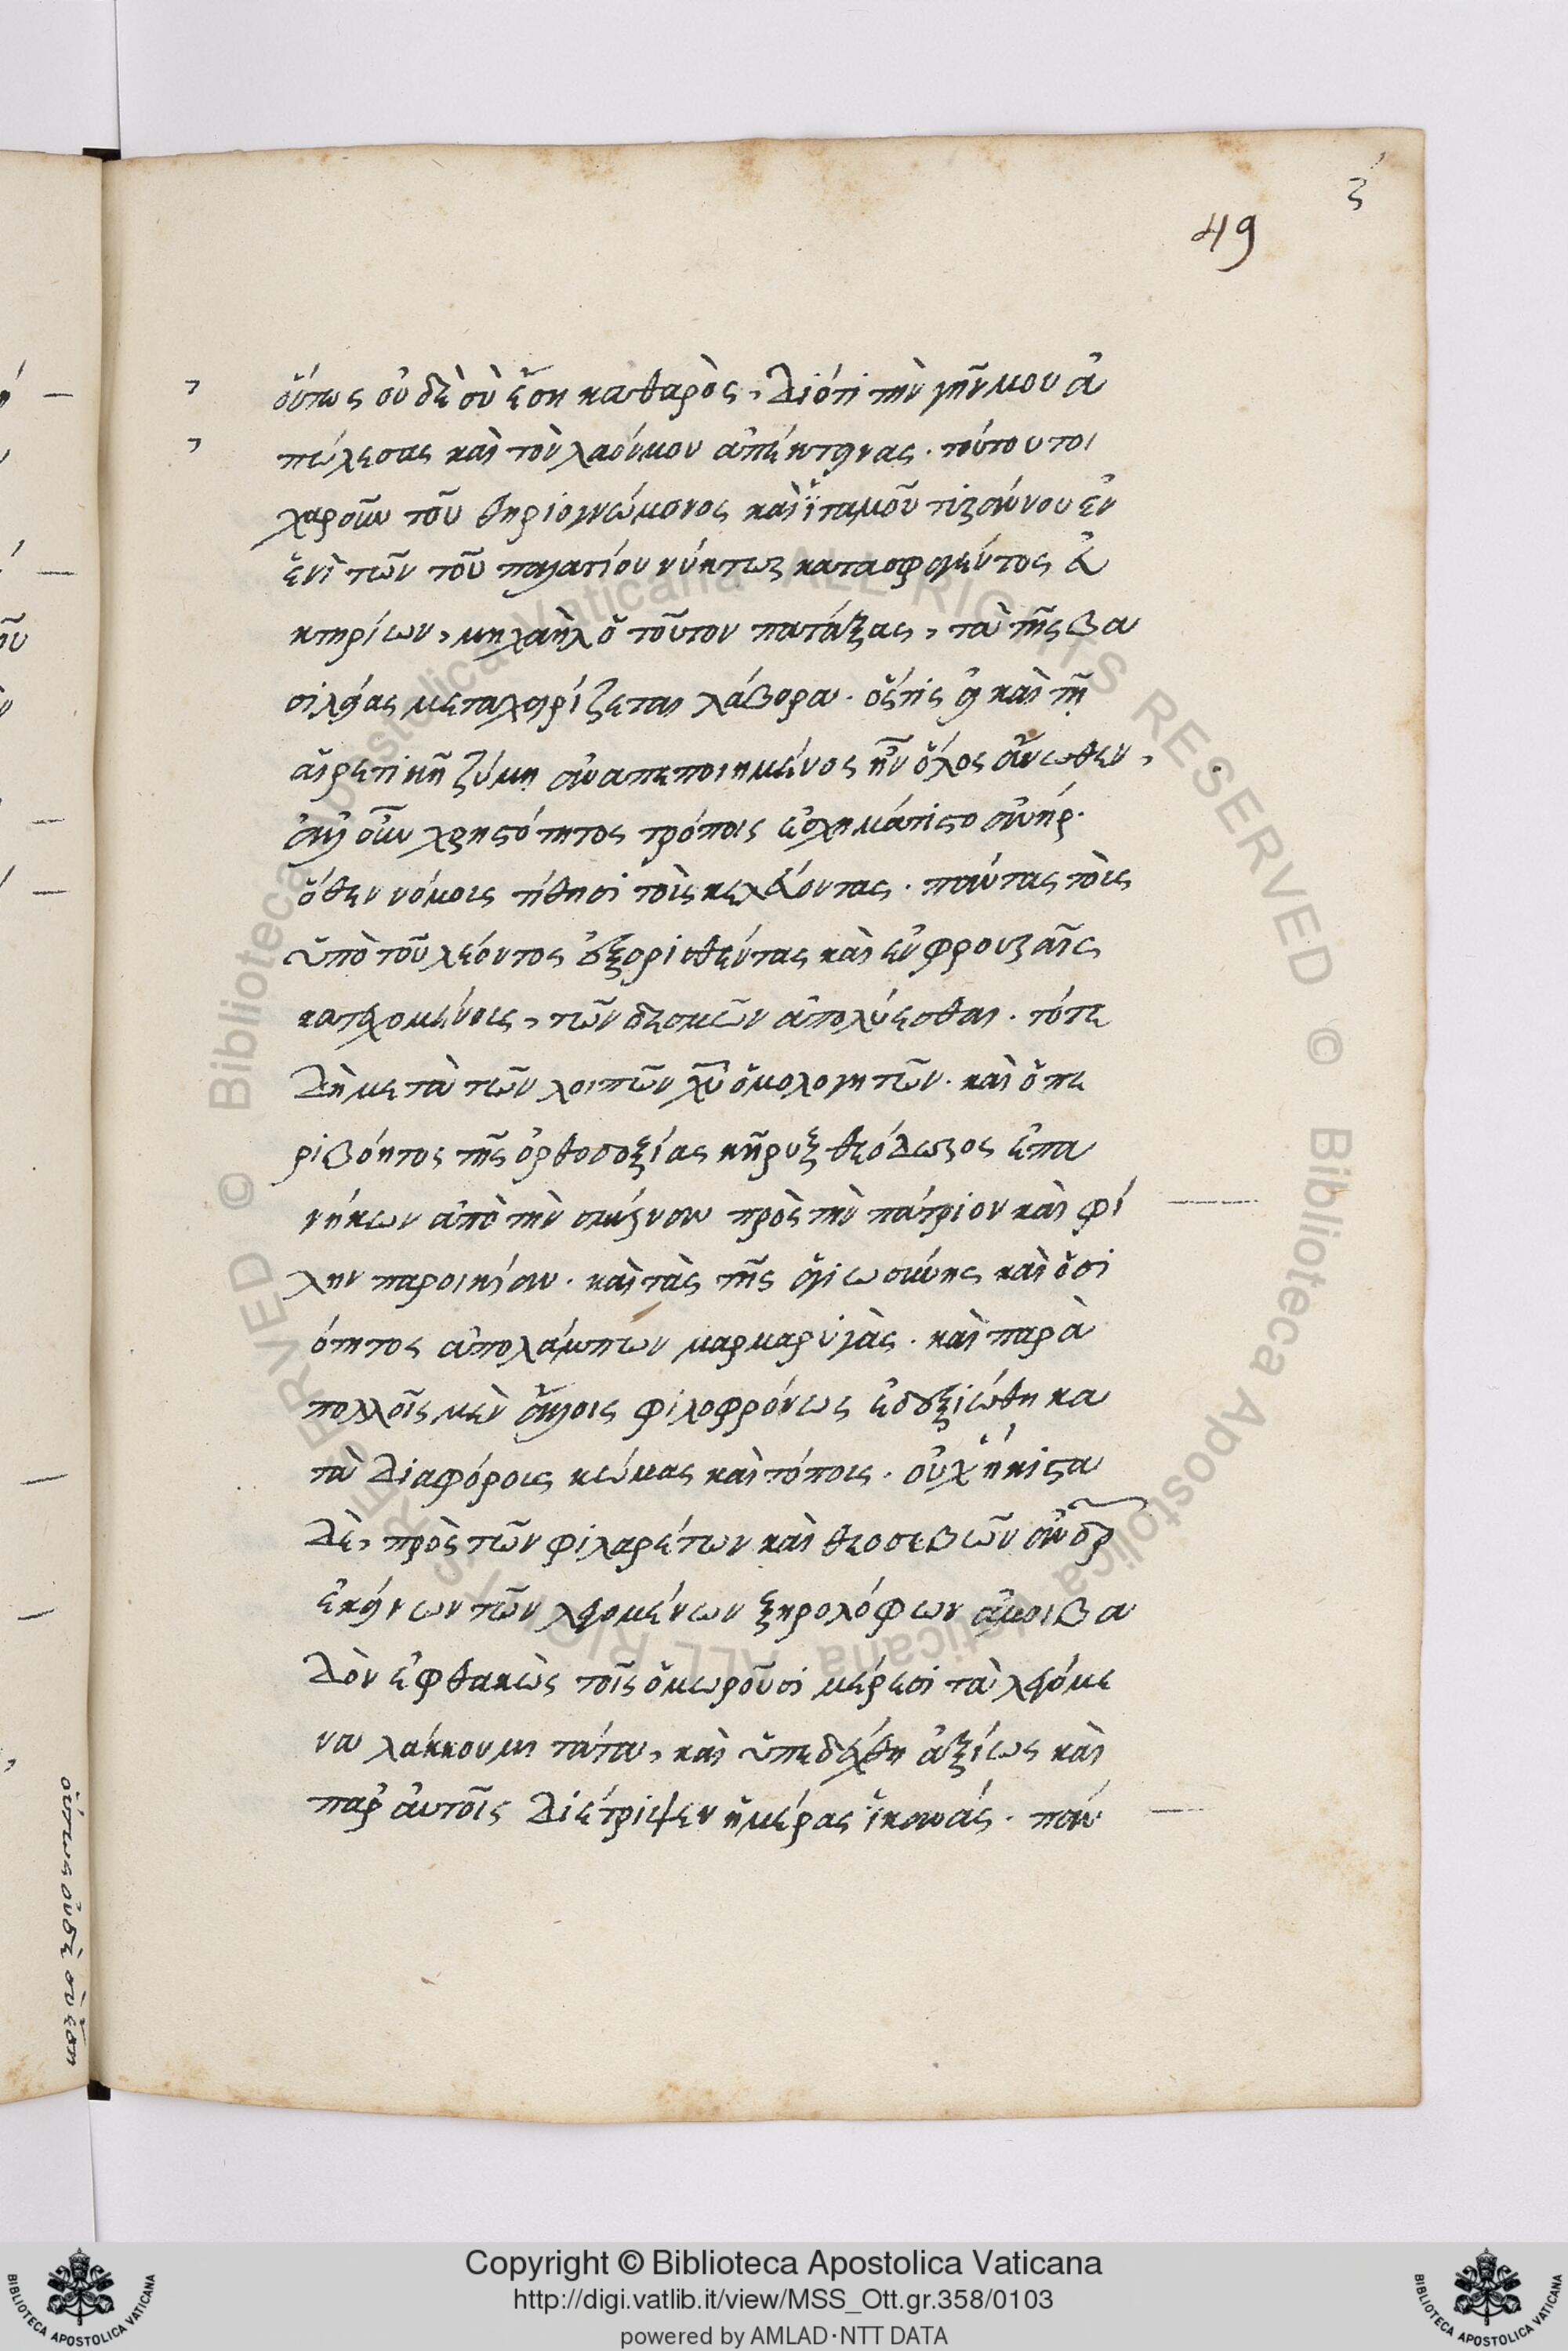 ζ
49
οὕτως οὐδὲ σὺ ἔση καθαρὸς, διότι τὴν γῆν μου ἀ
πώλεσας καὶ τὸν λαόν μου ἀπέκτεινας. τούτου τοι
γαροῦν τοῦ θηριογνώμονος καὶ ἰταμοῦ τυράννου ἐν
ἑνὶ τῶν τοῦ παλατίου νύκτωρ κατασφαγέντος εὐ
κτηρίων, μιχαὴλ ὁ τοῦτον πατάξας, τὰ τῆς βα
σιλείας μεταχειρίζεται λάβορα. ὅστις εἰ καὶ τῇ
αἱρετικῇ ζύμῃ συναπεποιημένος ἦν ὅλος ἄνωθεν,
ἀλλ' οὖν χρηστότητος τρόποις ἐσχημάτιστο ἀνήρ.
ὅθεν νόμοις τίθησι τοῖς κελεύοντας. πάντας τοὺς
ὑπὸ τοῦ λέοντος ἐξορισθέντας καὶ ἐν φρουραῖς
κατεχομένους, τῶν δεσμῶν ἀπολύεσθαι. τότε
δὴ μετὰ τῶν λοιπῶν χυ ὁμολογητῶν. καὶ ὁ πε
ριβόητος τῆς ὀρθοδοξίας κῆρυξ θεόδωρος ἐπα
νήκων ἀπὸ τὴν σμύρναν πρὸς τὴν πάτριον καὶ φί
λην παροικίαν. καὶ τὰς τῆς ἁγιωσύνης καὶ ὁσι
ότητος ἀπολάμπων μαρμαρυγὰς. καὶ παρὰ
πολλοῖς μὲν ἄλλοις φιλοφρόνως ἐδεξιώθη κα
τὰ διαφόρους κώμας καὶ τόπους. οὐχ ἥκιστα
δὲ, πρὸς τῶν φιλαρέτων καὶ θεοσεβῶν ἀνδρ
ἐκείνων τῶν λεγομένων ξηρολόφων ἀμοιβα
δὸν ἐφθακὼς τοῖς ὁμωροῦσι μέρεσι τὰ λεγόμε
να λάκκου μιτάτα, καὶ ὑπεδέχθη ἀξίως καὶ
παρ' αὐτοῖς διέτριψεν ἡμέρας ἱκανάς. πάν
οὕτως οὐδὲ σὺ ἔση
Copyright © Biblioteca Apostolica Vaticana
http://digi.vatlib.it/view/MSS_Ott.gr.358/0103
powered by AMLAD·NTT DATA